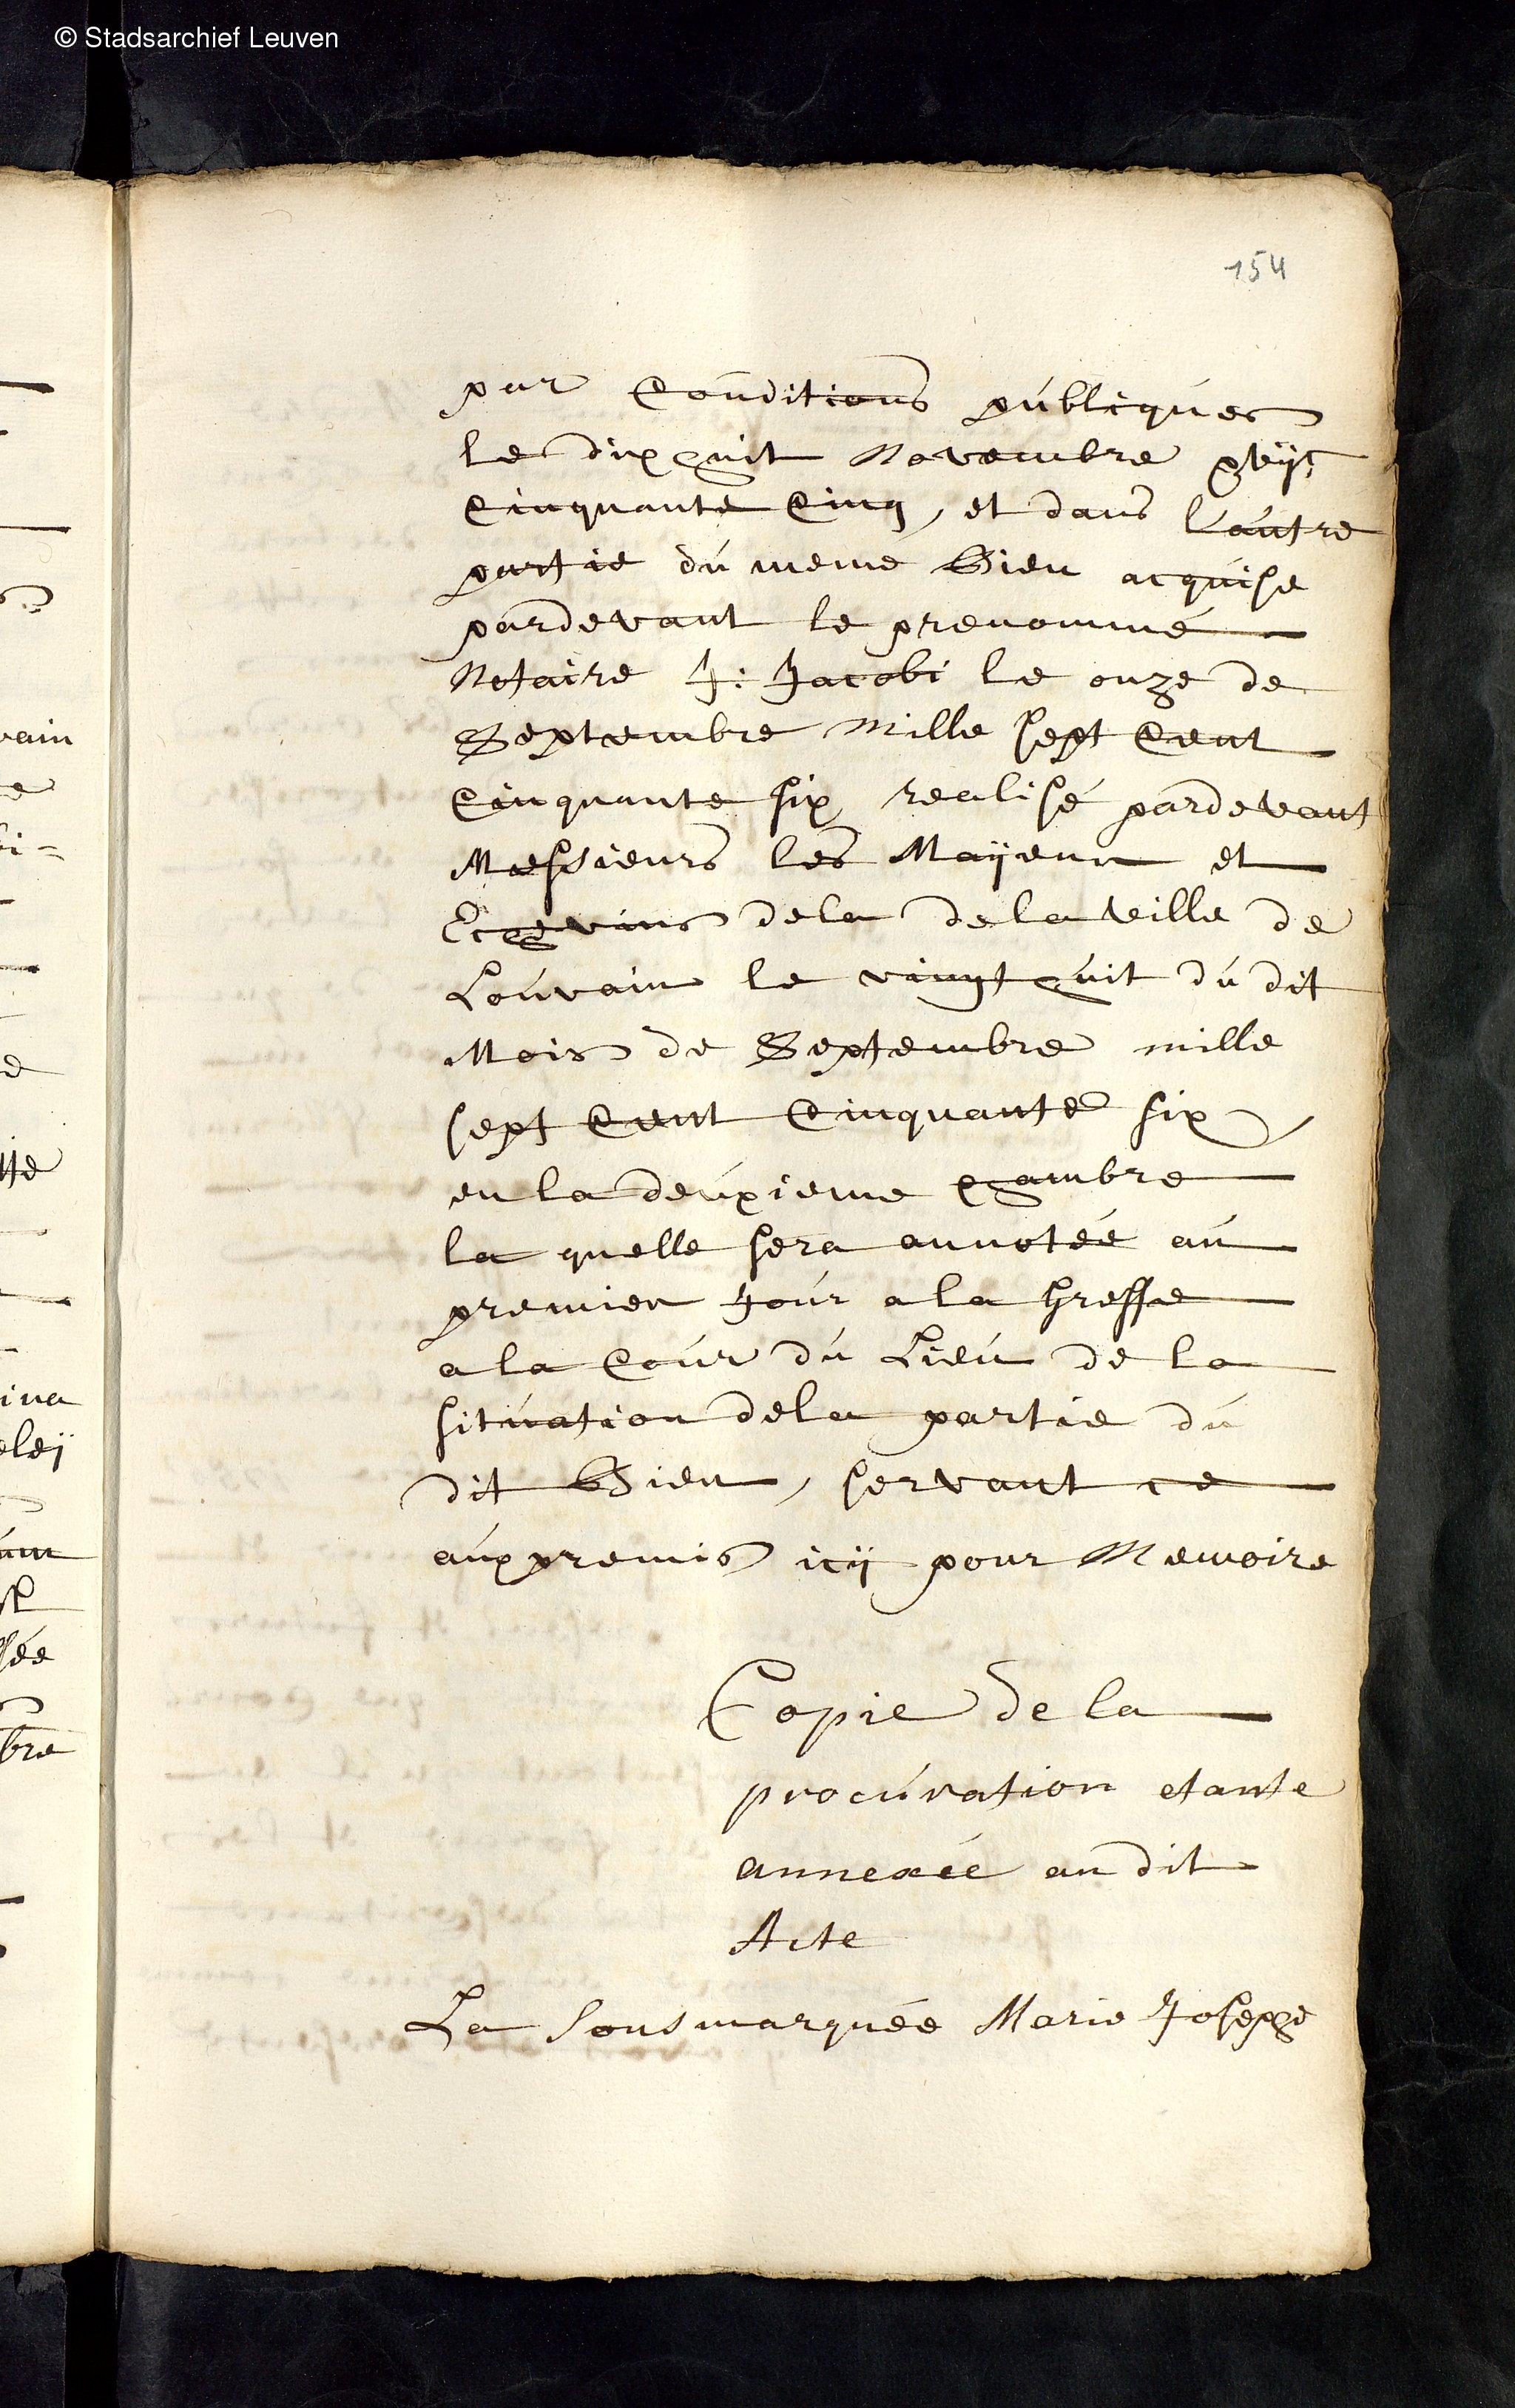 © Stadsarchief Leuven
154
par Conditions publiques
le dixhuit Novembre xvijc
Cinquante Cinq, et dans l'autre
partie du meme Bien acquise
pardevant le prenommé
Notaire J: Jacobi le onze de
Septembre Mille sept Cent
Cinquante six realisé pardevant
Messieurs les Maÿeur et
Echevins dela de la ville de
Louvain le vingt huit du dit
Mois de Septembre mille
sept Cent Cinquante six
en la deuxieme chambre
la quelle sera annotée au
premier Jour a la Greffe
a la Cour du Lieu de la
situation dela partie du
dit Bien, servant ce
aux premis icÿ pour Memoire
Copie de la
procuration etante
annexée au dit
Acte
La Sousmarquée Marie Josephe